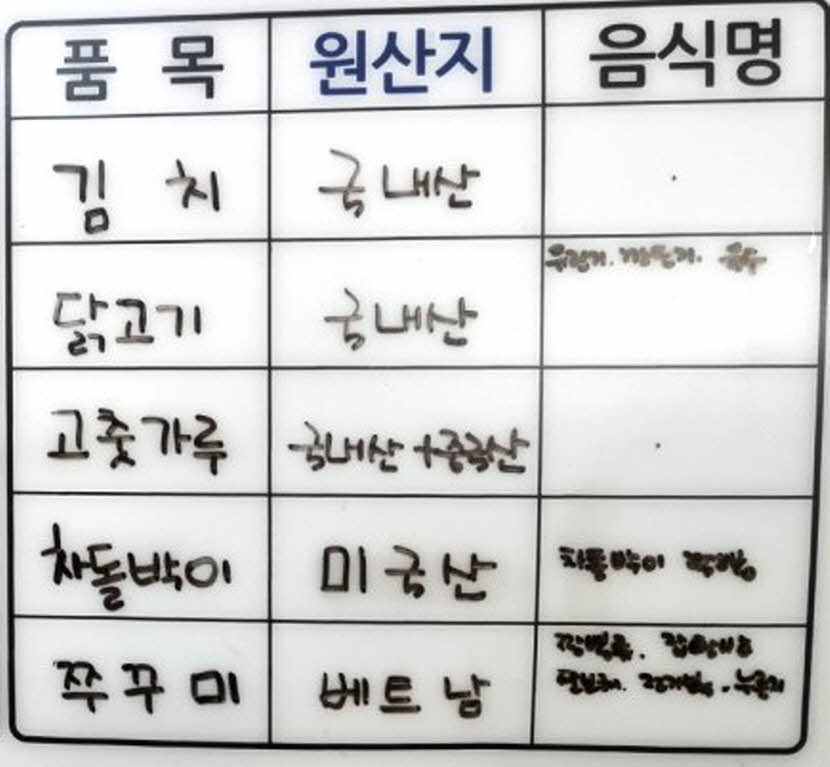 품 목 원산지 음식명
김 치 국내산
닭고기 국내산 유린기. 깐풍기. 육수
고춧가루 국내산+중국산
차돌박이 미국산 차돌박이 짬뽕
쭈꾸미 베트남